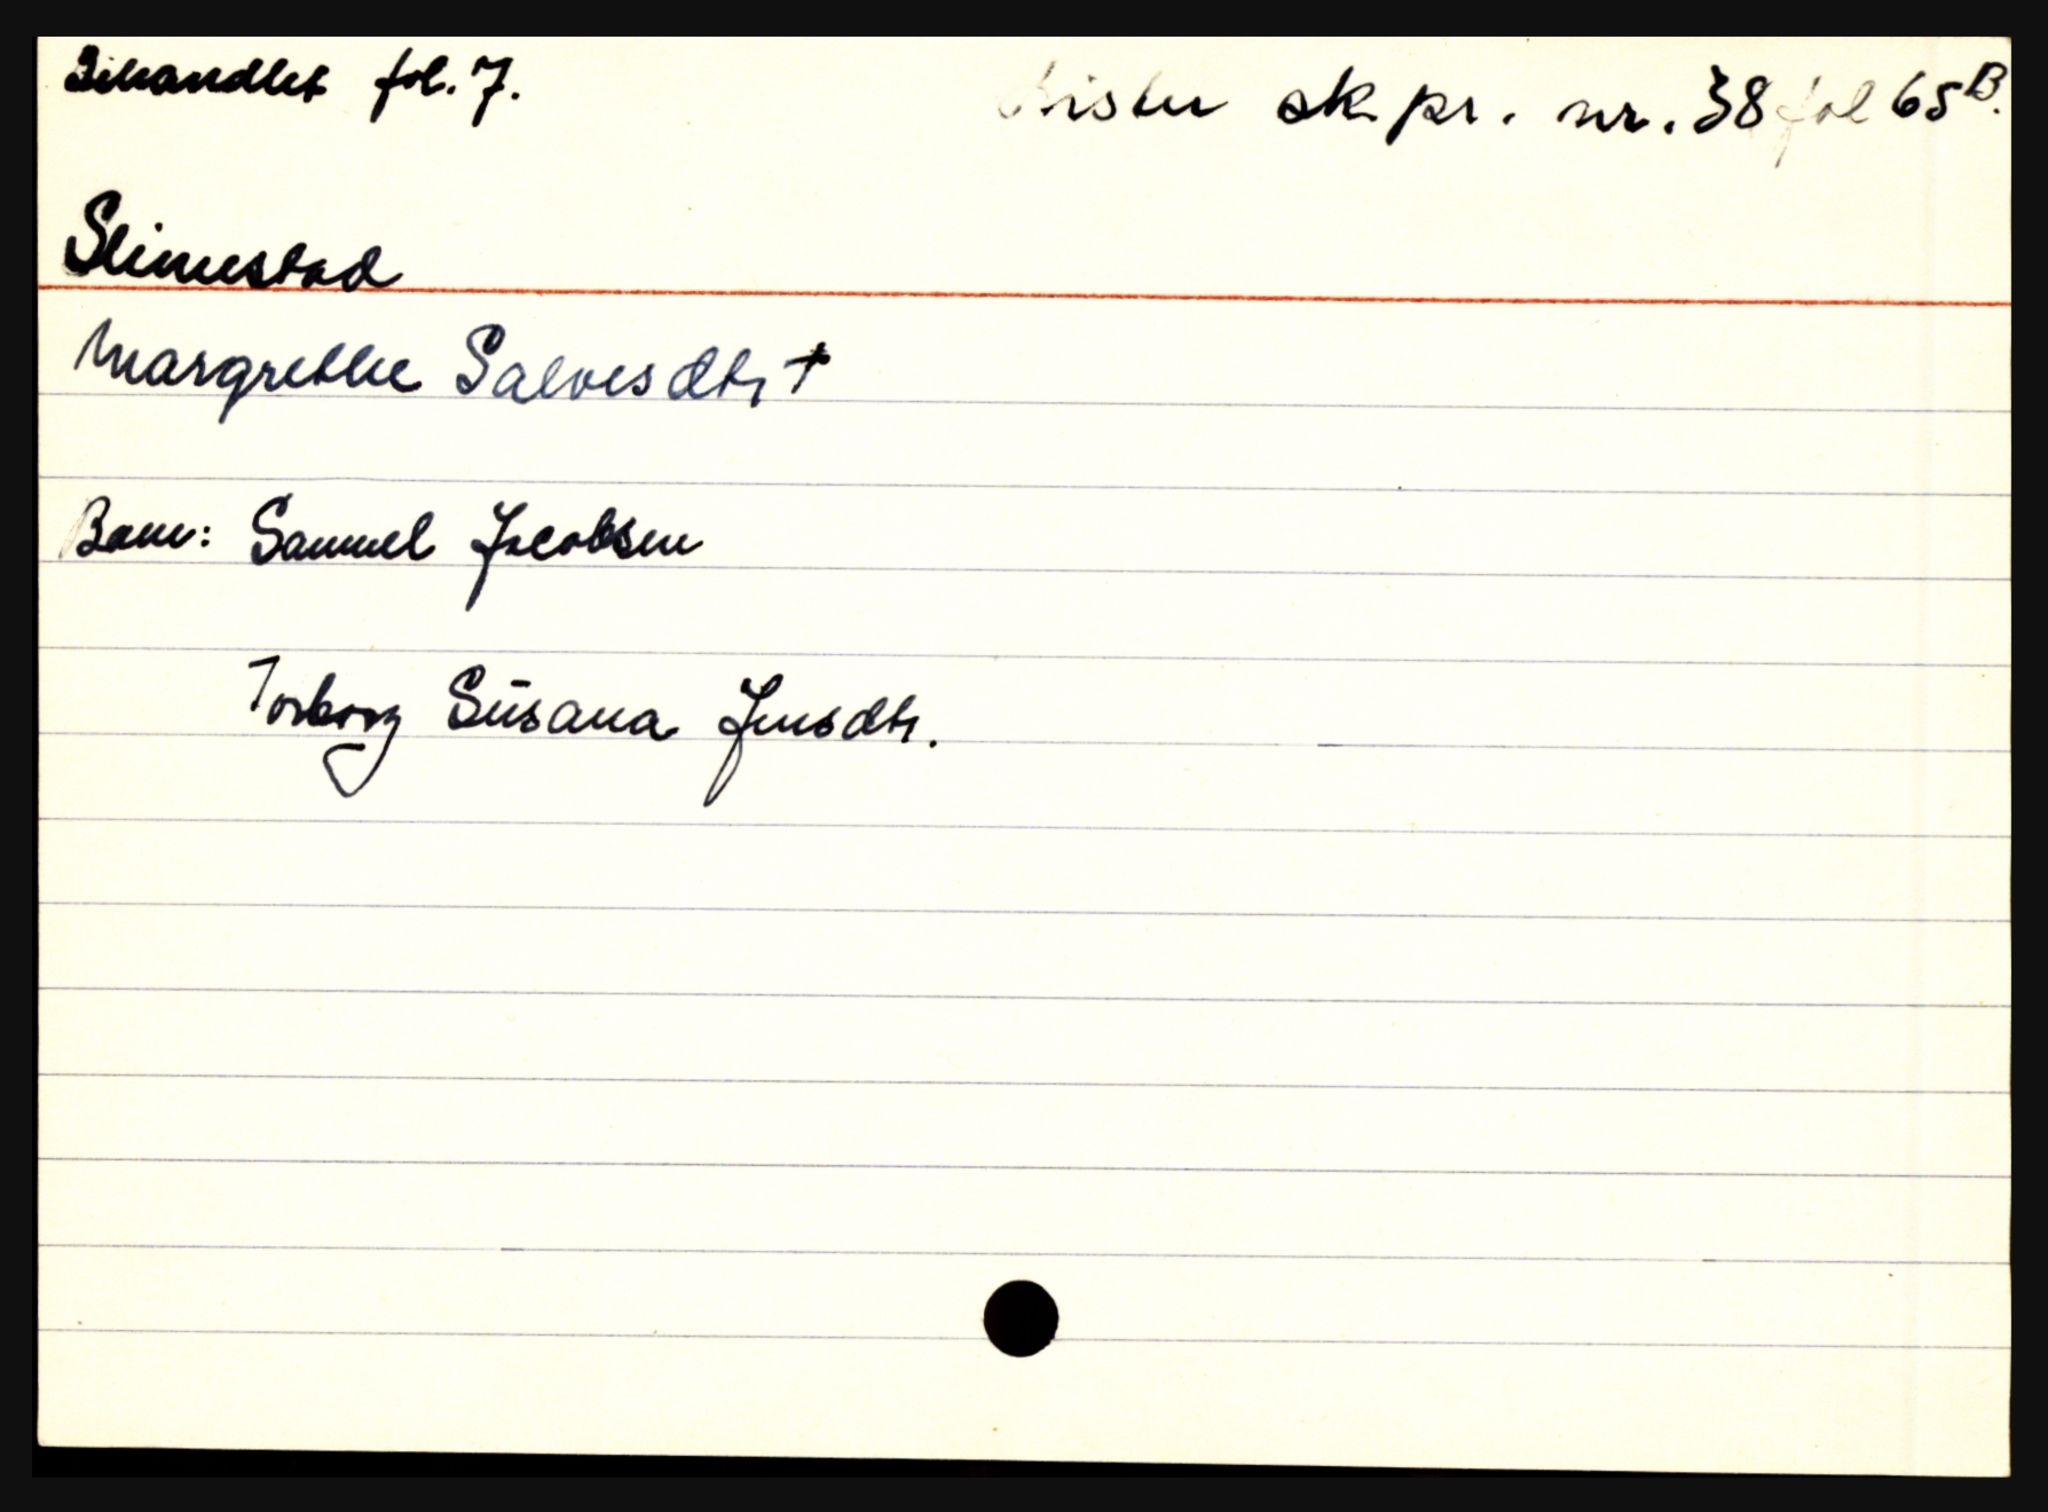 Behandlet fol. 7. Lister sk. pr. nr. 38 fol 65 B.
Slimestad
Margrethe Salvesdtr †
Barn: Samuel Jacobsen
Torborg Susana Jensdtr.